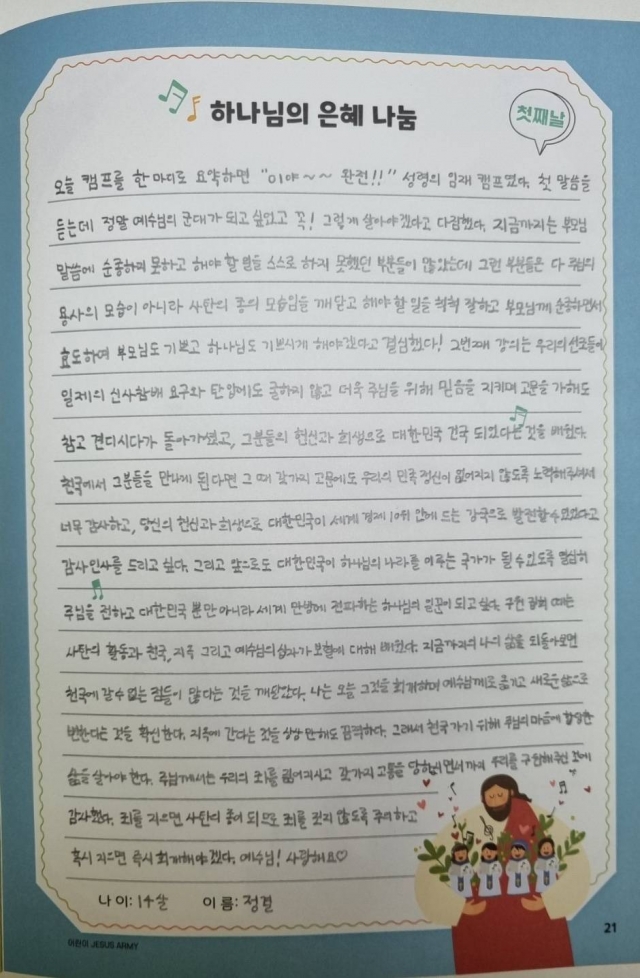 하나님의 은혜 나눔
첫째날
오늘 캠프를 한 마디로 요약하면 "이야~~ 완전!!" 성령의 임재 캠프였다. 첫 말씀을
듣는데 정말 예수님의 군대가 되고 싶었고 꼭! 그렇게 살아야겠다고 다짐했다. 지금까지는 부모님
말씀에 순종하지 못하고 해야 할 일을 스스로 하지 못했던 부분들이 많았는데 그런 부분들은 다 주님의
용사의 모습이 아니라 사탄의 종의 모습임을 깨닫고 해야 할 일을 척척 잘하고 부모님께 순종하면서
효도하여 부모님도 기쁘고 하나님도 기쁘시게 해야겠다고 결심했다! 2번째 강의는 우리의 선조들이
일제의 신사참배 요구와 탄압에도 굴하지 않고 더욱 주님을 위해 믿음을 지키며 고문을 가해도
참고 견디시다가 돌아가셨고, 그분들의 헌신과 희생으로 대한민국 건국 되었다는 것을 배웠다.
천국에서 그분들을 만나게 된다면 그 때 갖가지 고문에도 우리의 민족 정신이 없어지지 않도록 노력해주셔서
너무 감사하고, 당신의 헌신과 희생으로 대한민국이 세계 경제 10위 안에 드는 강국으로 발전할 수 있었다고
감사인사를 드리고 싶다. 그리고 앞으로도 대한민국이 하나님의 나라를 이루는 국가가 될 수 있도록 열심히
주님을 전하고 대한민국 뿐만 아니라 세계 만방에 전파하는 하나님의 일꾼이 되고 싶다. 구원 집회 때는
사탄의 활동과 천국, 지옥 그리고 예수님의 십자가 보혈에 대해 배웠다. 지금까지의 나의 삶을 되돌아보면
천국에 갈 수 없는 점들이 많다는 것을 깨달았다. 나는 오늘 그것을 회개하며 예수님께로 옮기고 새로운 삶으로
변한다는 것을 확신한다. 지옥에 간다는 것을 상상만해도 끔찍하다. 그래서 천국 가기 위해 주님의 마음에 합당한
삶을 살아야 한다. 주님께서는 우리의 죄를 짊어지시고 갖가지 고통을 당하시면서까지 우리를 구원해주신 것에
감사했다. 죄를 지으면 사탄의 종이 되므로 죄를 짓지 않도록 주의하고
혹시 지으면 즉시 회개해야겠다. 예수님! 사랑해요♡
나이: 14살 이름: 정결
어린이 JESUS ARMY
21